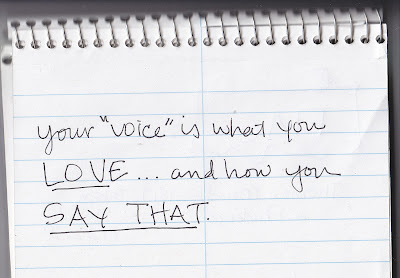 your "voice" is what you
LOVE... and how you
SAY THAT.